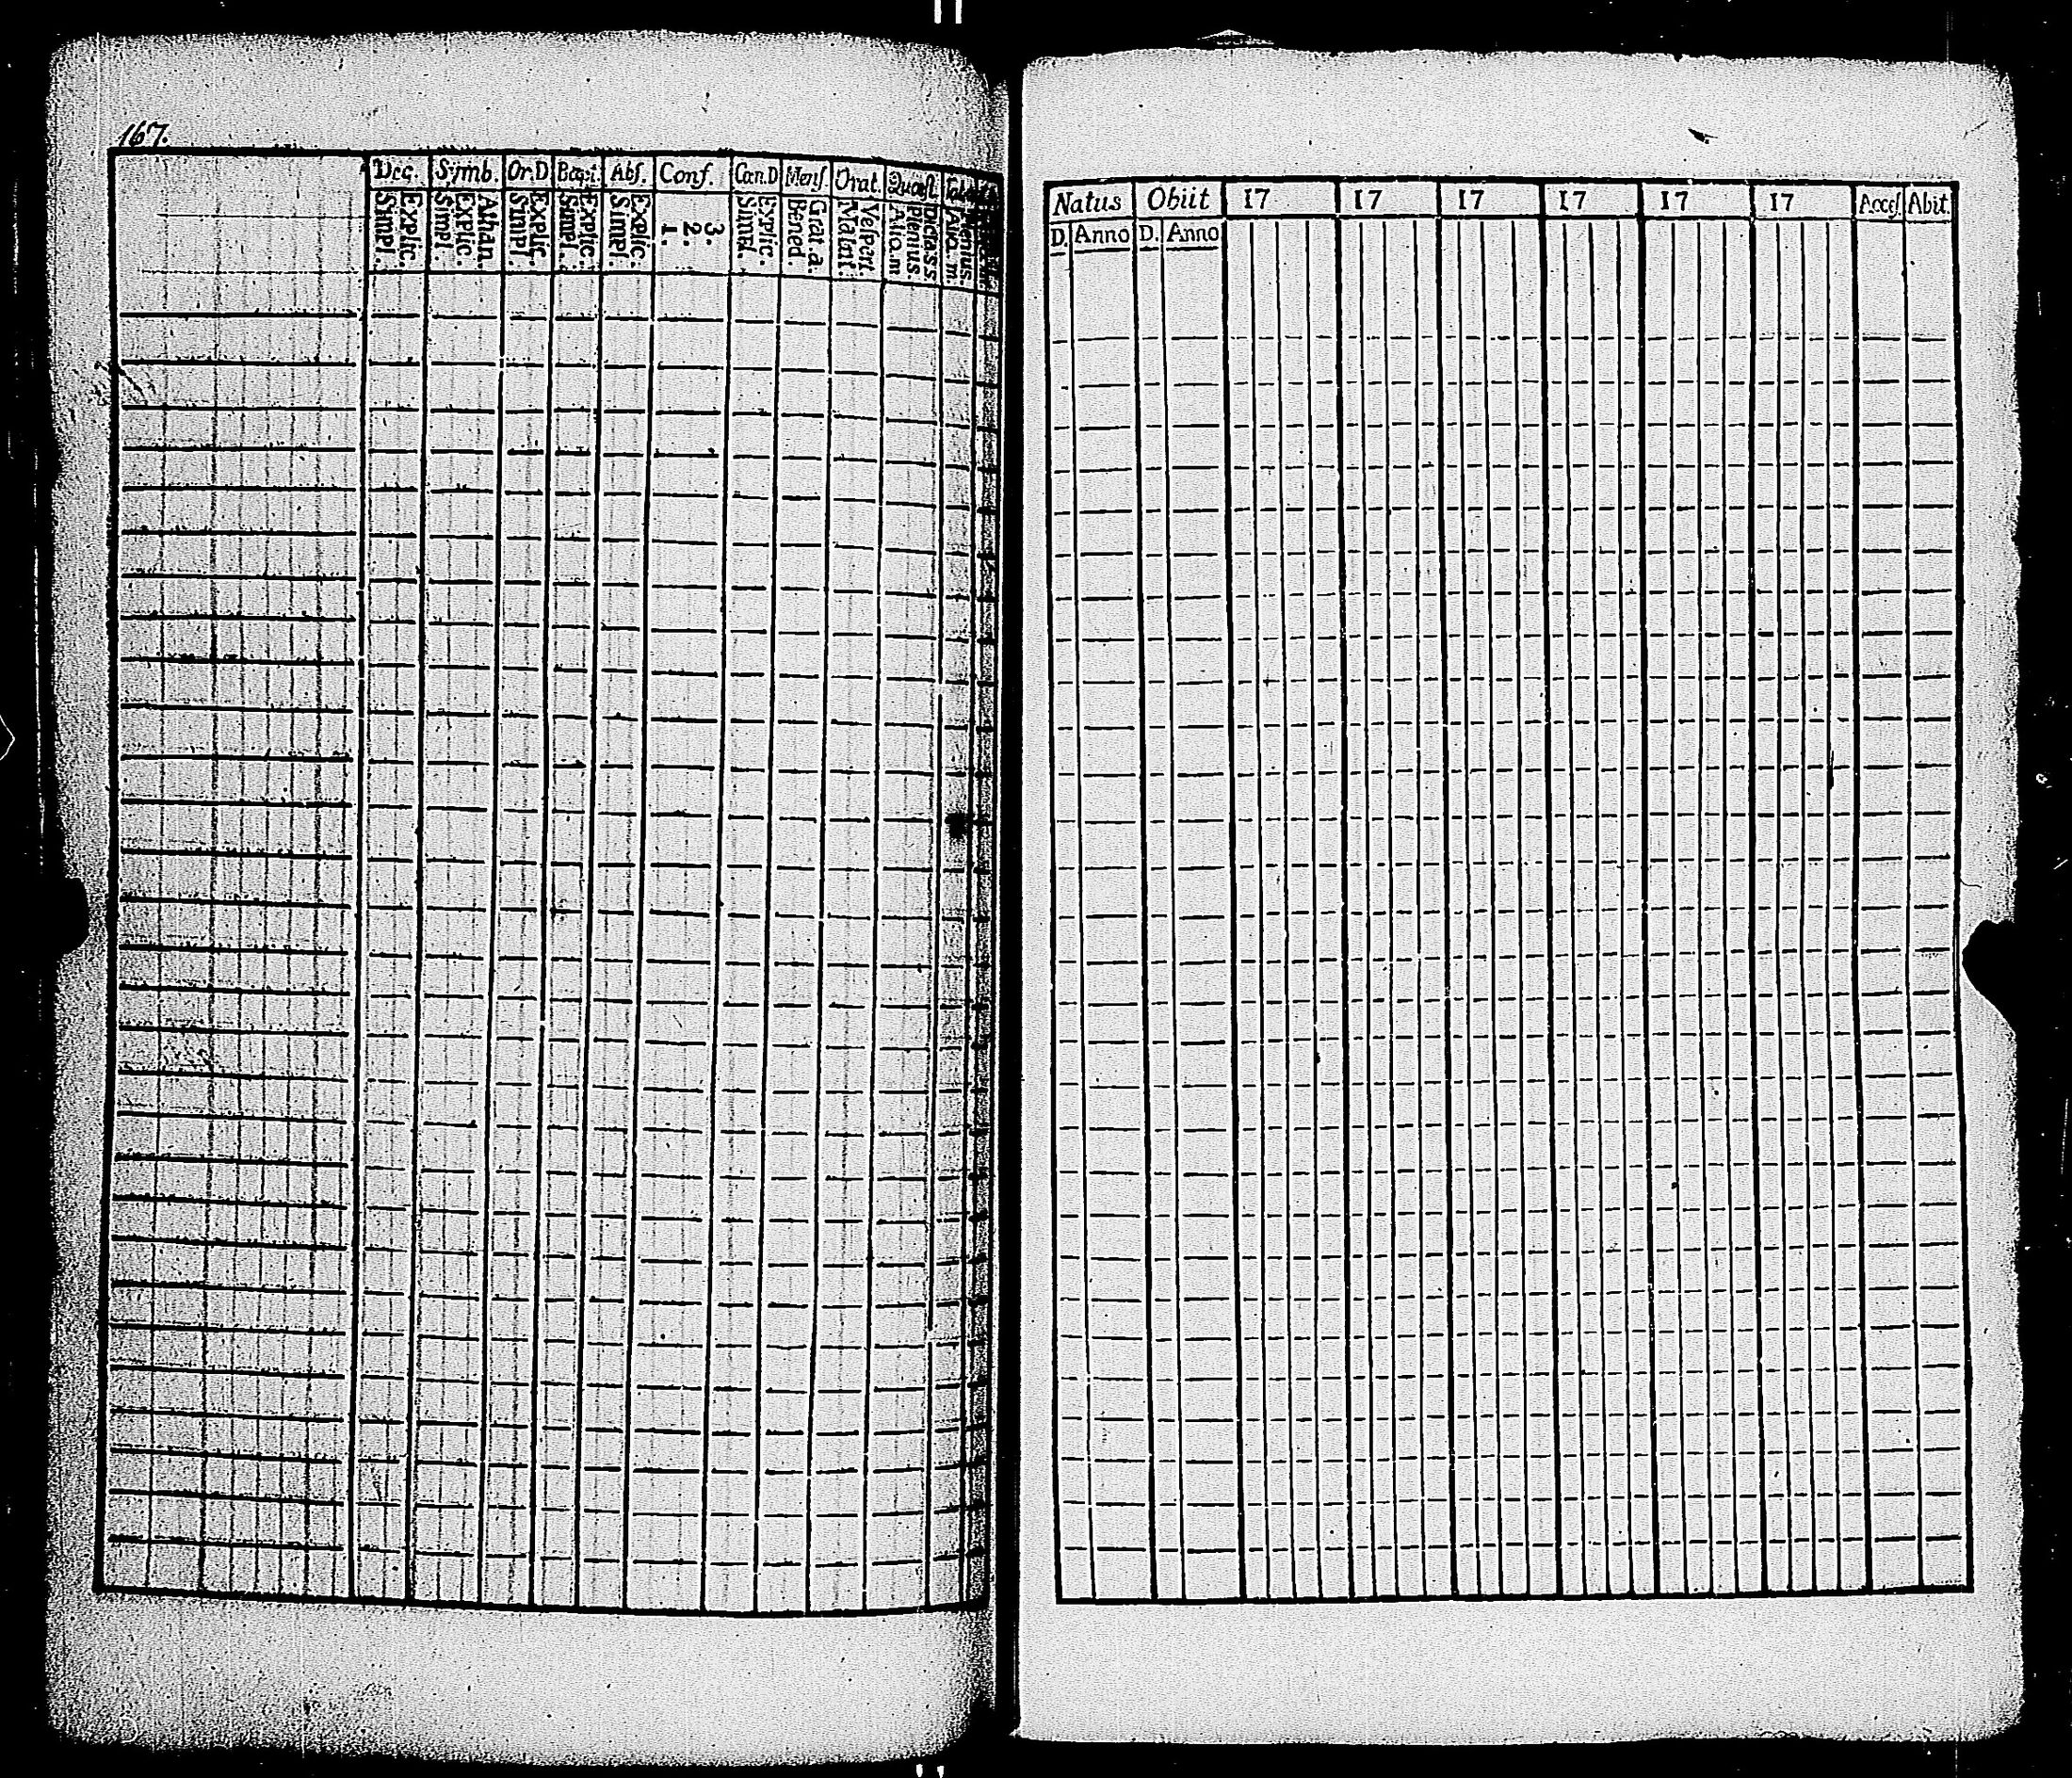 167.
Dec. Symb. Or.D Bapt. Abs. Conf. Cœn.D Mens. Orat. Quæst. Tab.
Explic. Simpl. Athan. Explic. Simpl. Explic. Simpl. Explic. Simpl. Explic. Simpl. 3. 2. 1. Explic. Simpl. Grat. a. Bened. Vespert. Matut. Dict. s.s. Plenius. Aliq. m Plenius. Aliq. m.
Natus Obiit 17 17 17 17 17 17 Acces. Abit.
D. Anno D. Anno